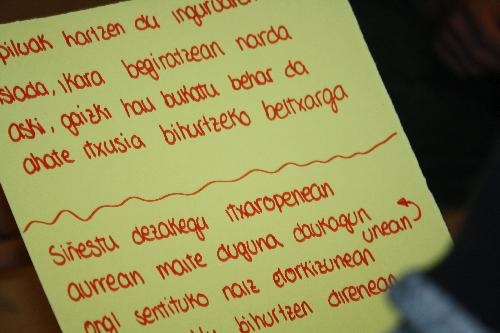 piluak hartzen du inguruaren
islada, ikara begiratzean narda
aski, gaizki hau bukatu behar da
ahate itxusia bihurtzeko beltxarga
Siñestu dezakegu itxaropenean
aurrean maite duguna daukagun
unean
ongi sentituko naiz etorkizunean
bihurtzen direnean